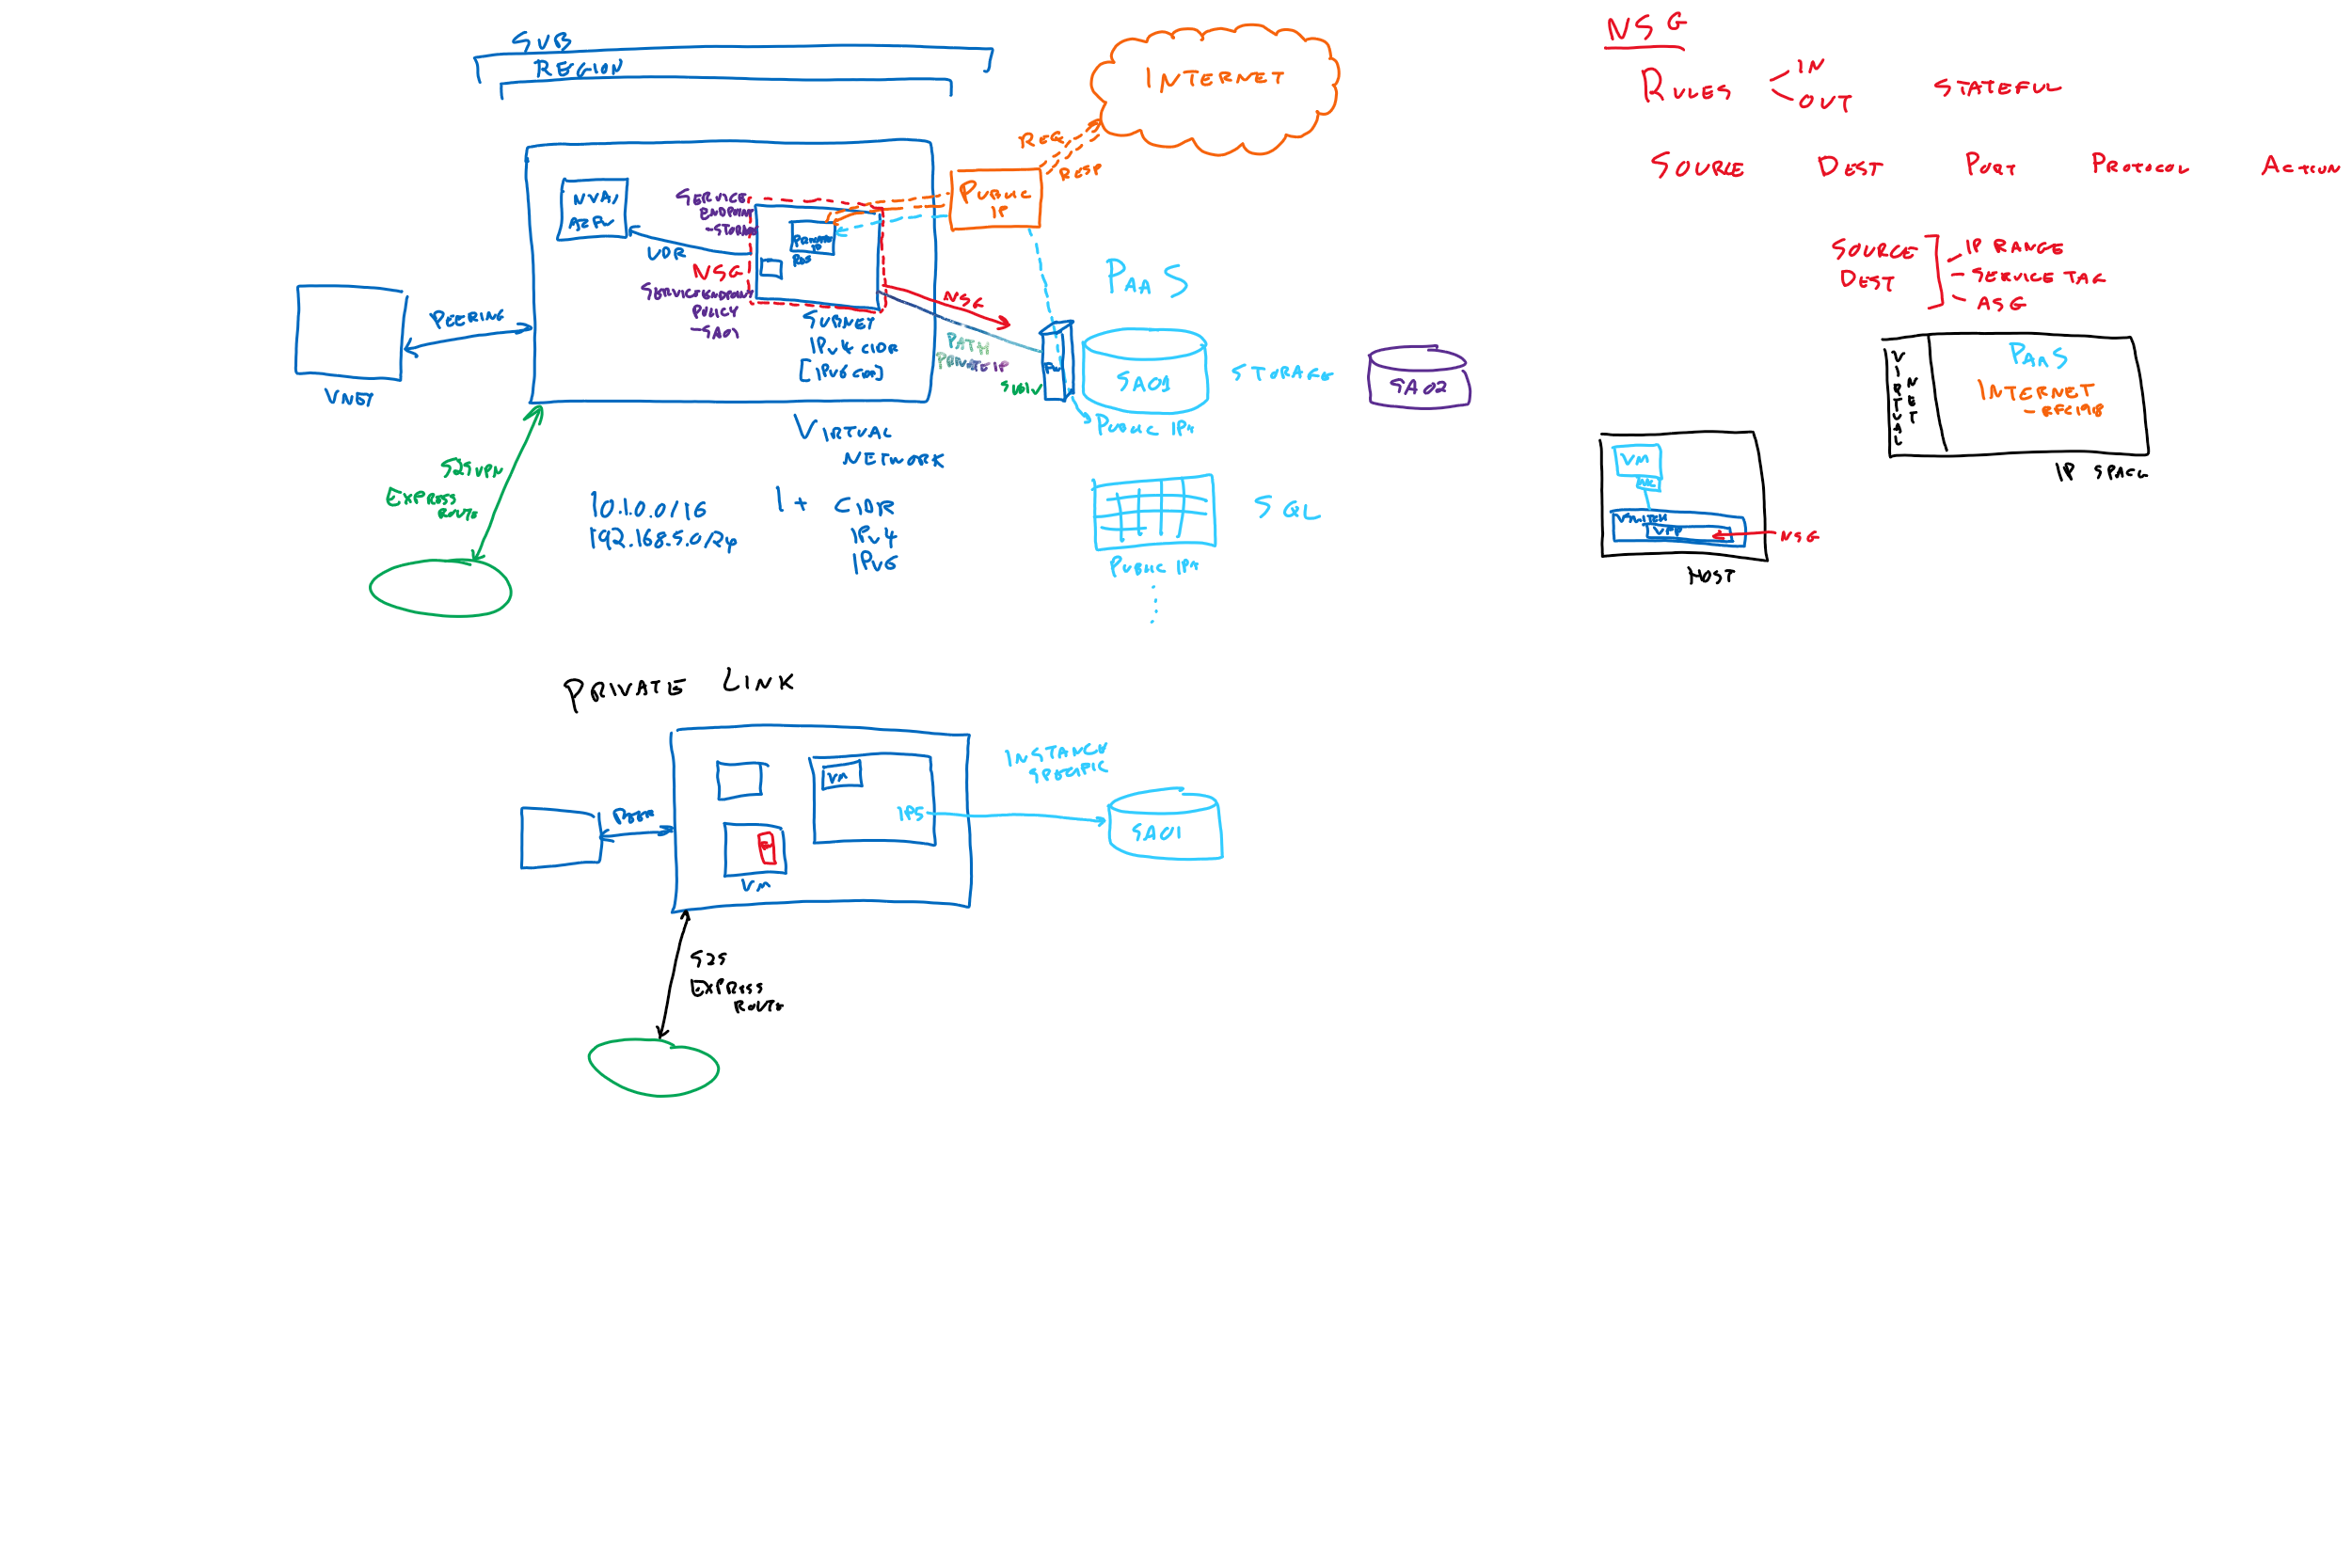 SUB
REGION
INTERNET
REQ
RESP
PUBLIC
IP
NVA/
AZFW
SERVICE
ENDPOINT
-STORAGE
PRIVATE
IP
UDR
NSG
SERVICE ENDPOINT
POLICY
-SA01
SUBNET
IPv4 CIDR
[IPv6 CIDR]
NSG
PATH
PRIVATE IP
SUB1 ✓
FW
PEERING
VNET
VIRTUAL
NETWORK
S2SVPN
EXPRESS
ROUTE
10.1.0.0/16
192.168.5.0/24
1+ CIDR
IPv4
IPv6
PAAS
SA01
STORAGE
PUBLIC IP*
SA02
SQL
PUBLIC IP*
NSG
RULES
IN
OUT
STATEFUL
SOURCE DEST PORT PROTOCOL ACTION
SOURCE
DEST
- IP RANGE
- SERVICE TAG
- ASG
VIRTUAL
NET
PAAS
INTERNET
- RFC1918
IP SPACE
VM
NIC
VSWITCH
VFP
NSG
HOST
PRIVATE LINK
VM
IP5
INSTANCE
SPECIFIC
SA01
PEER
VM
S2S
EXPRESS
ROUTE